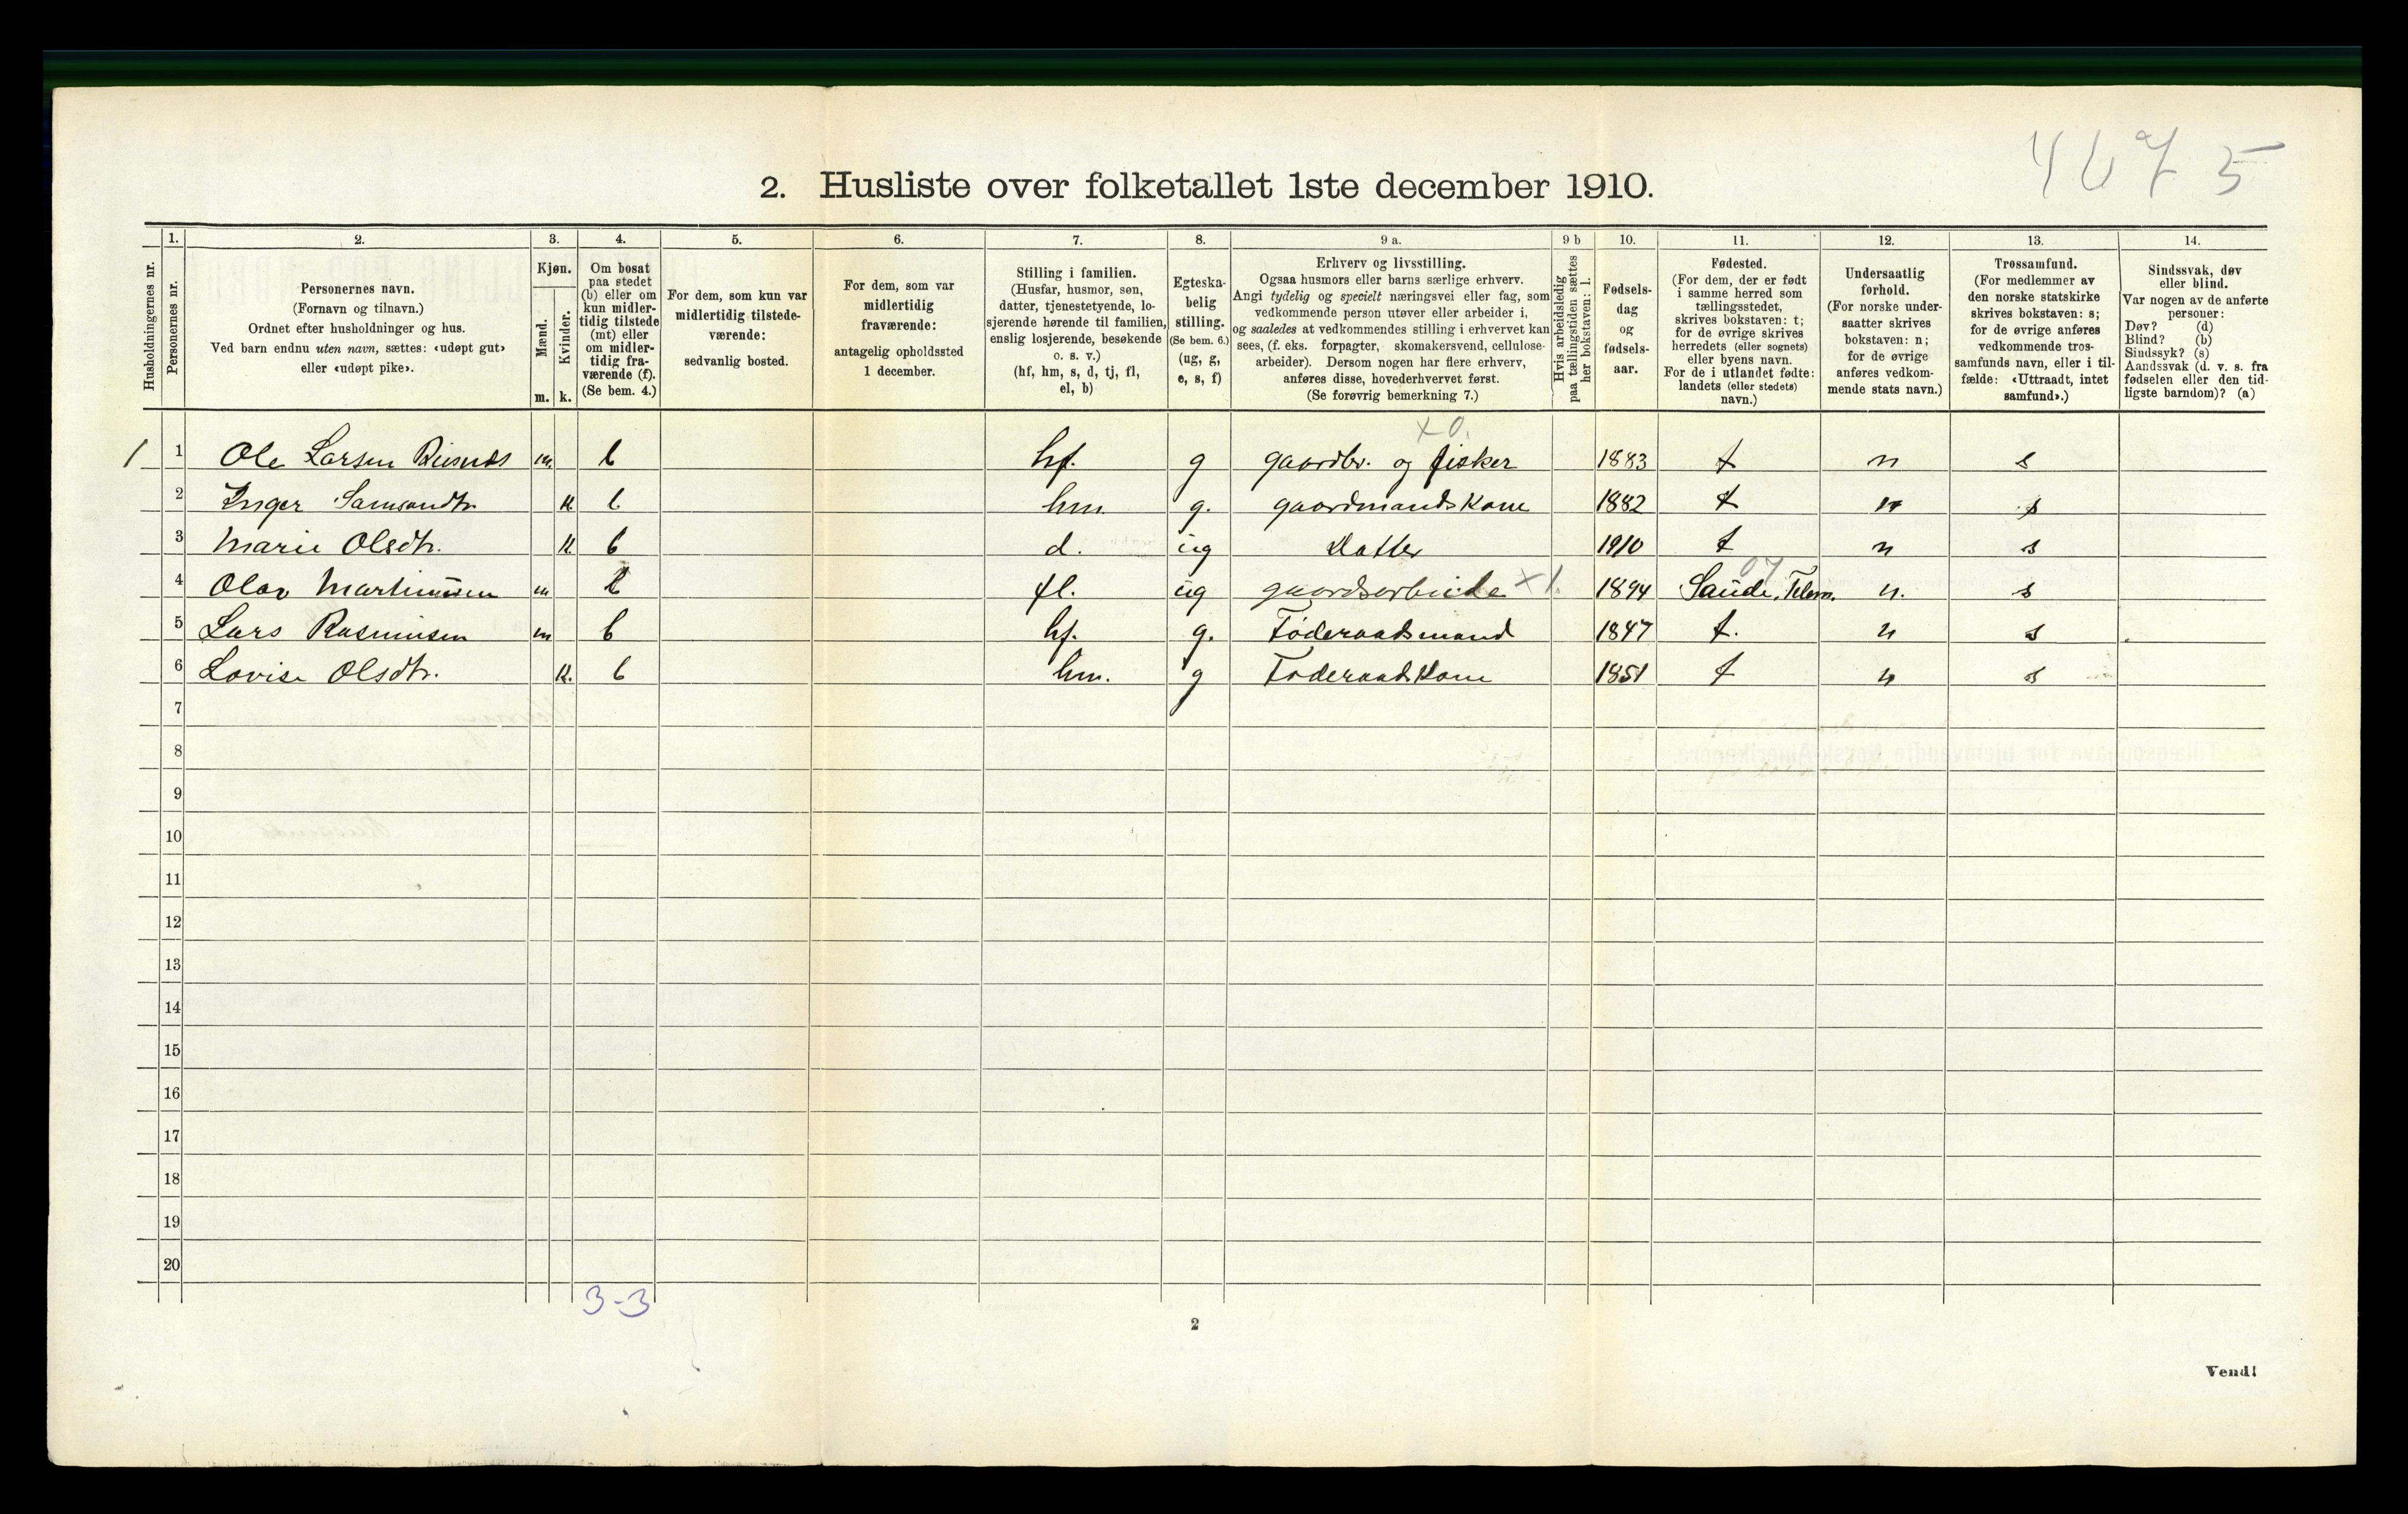 4675
2. Husliste over folketallet 1ste december 1910.
Husholdningernes nr.
1.
Personernes nr.
2.
Personernes navn.
(Fornavn og tilnavn.)
Ordnet efter husholdninger og hus.
Ved barn endnu uten navn, sættes: «udøpt gut»
eller «udøpt pike».
3.
Kjøn.
Mænd.
Kvinder.
m. k.
4.
Om bosat
paa stedet
(b) eller om
kun midler-
tidig tilstede
(mt) eller
om midler-
tidig fra-
værende (f).
(Se bem. 4.)
5.
For dem, som kun var
midlertidig tilstede-
værende:
sedvanlig bosted.
6.
For dem, som var
midlertidig
fraværende:
antagelig opholdssted
1 december.
7.
Stilling i familien.
(Husfar, husmor, søn,
datter, tjenestetyende, lo-
sjerende hørende til familien,
enslig losjerende, besøkende
o. s. v.)
(hf, hm, s, d, tj, fl,
el, b)
8.
Egteska-
belig
stilling.
(Se bem. 6.)
(ug, g,
e, s, f)
9 a.
Erhverv og livsstilling.
Ogsaa husmors eller barns særlige erhverv.
Angi tydelig og specielt næringsvei eller fag, som
vedkommende person utøver eller arbeider i,
og saaledes at vedkommendes stilling i erhvervet kan
sees, (f. eks. forpagter, skomakersvend, cellulose-
arbeider). Dersom nogen har flere erhverv,
anføres disse, hovederhvervet først.
(Se forøvrig bemerkning 7.)
9 b
Hvis arbeidsledig
paa tællingstiden sættes
her bokstaven: l.
10.
Fødsels-
dag
og
fødsels-
aar.
11.
Fødested.
(For dem, der er født
i samme herred som
tællingsstedet,
skrives bokstaven: t;
for de øvrige skrives
herredets (eller sognets)
eller byens navn.
For de i utlandet fødte:
landets (eller stedets)
navn.)
12.
Undersaatlig
forhold.
(For norske under-
saatter skrives
bokstaven: n;
for de øvrige
anføres vedkom-
mende stats navn.)
13.
Trossamfund.
(For medlemmer av
den norske statskirke
skrives bokstaven: s;
for de øvrige anføres
vedkommende tros-
samfunds navn, eller i til-
fælde: «Uttraadt, intet
samfund».)
14.
Sindssvak, døv
eller blind.
Var nogen av de anførte
personer:
Døv? (d)
Blind? (b)
Sindssyk? (s)
Aandssvak (d. v. s. fra
fødselen eller den tid-
ligste barndom)? (a)
x 0.
1 1 Ole Larsen m. b hf. g gaardbr. og fisker 1883 t n s
2 Inger Samsondtr. k. b hm. g. gaardmandskone 1882 t n s
3 Marie Olsdtr. k. b d. ug Datter 1910 t n s
07
4 Olav Martinussen m b fl. ug gaardsarbeide x 1. 1894 Saude, Telem. n. s
5 Lars Rasmussen m b hf. g. Føderaadsmand 1847 t. n s
6 Lovise Olsdtr. k. b hm. g Føderaadskone 1851 t n s
7
8
9
10
11
12
13
14
15
16
17
18
19
20
3-3
2
Vend!